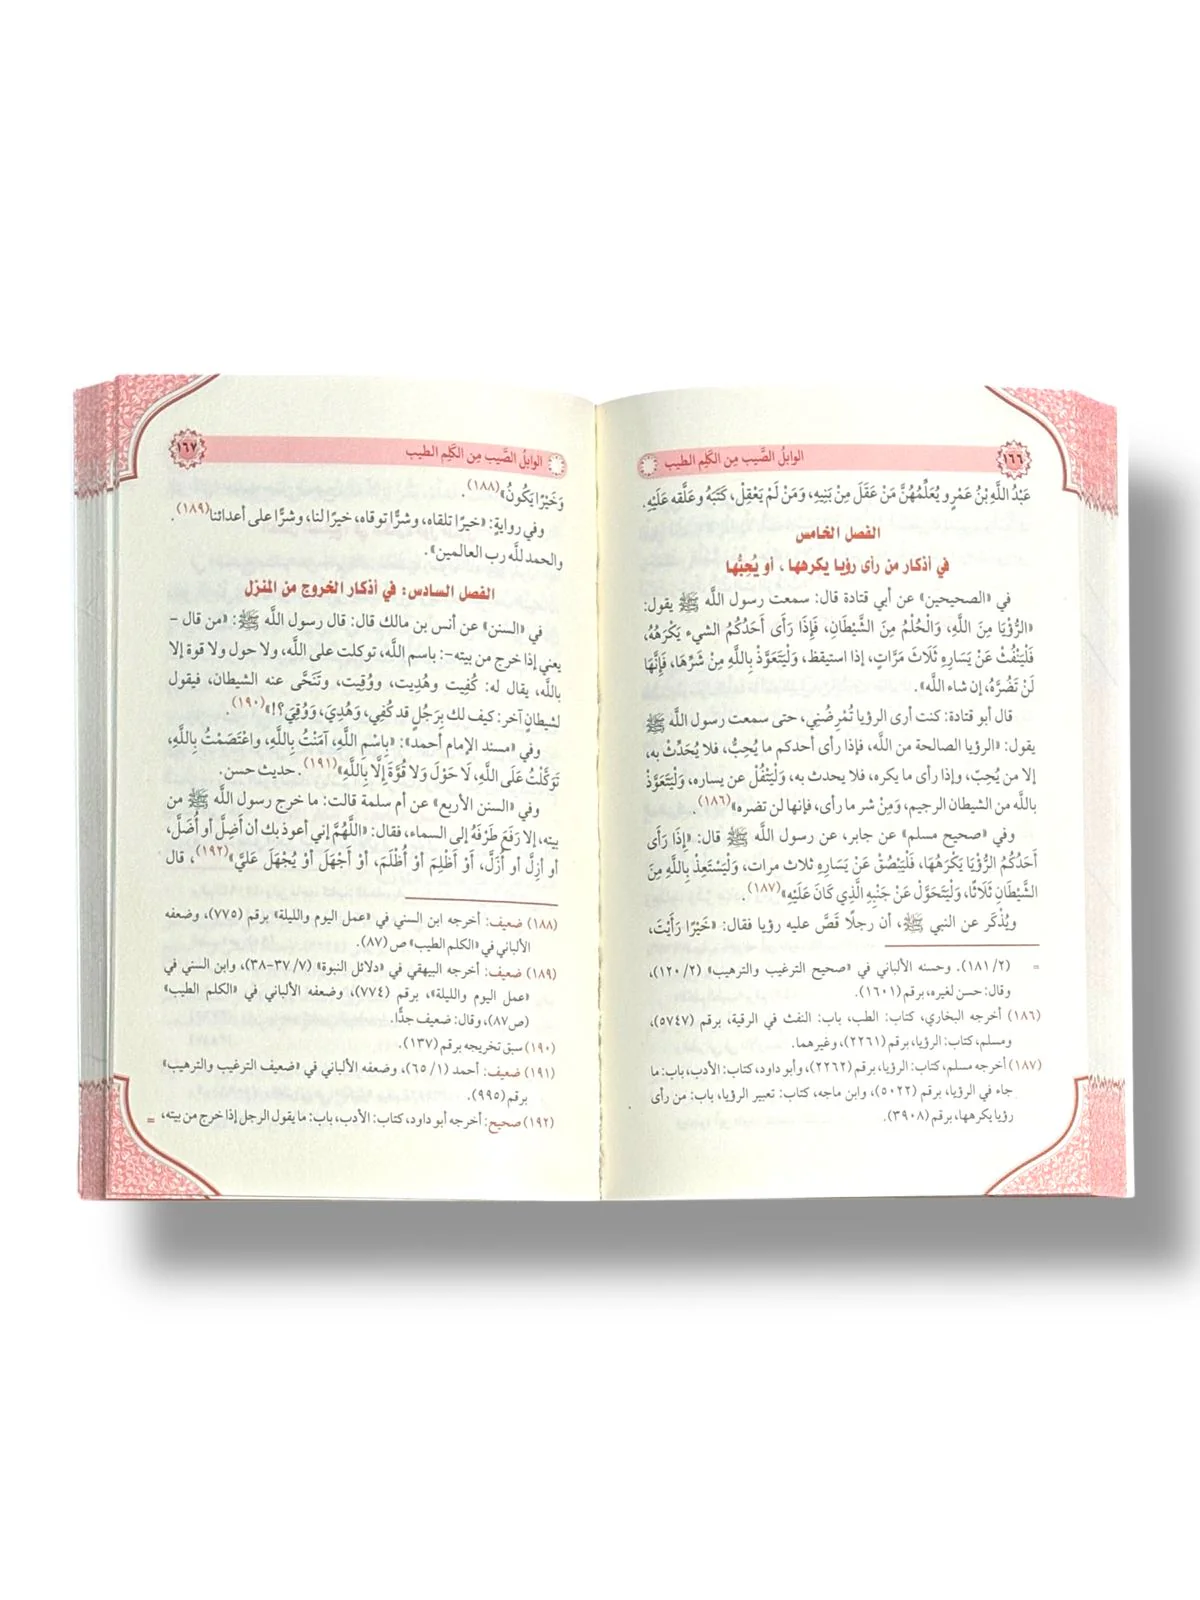 ١٦٦
الوابلُ الصَّيب مِن الكَلِم الطيب
عَبْدُ اللَّهِ بْنُ عَمْرٍو يُعَلِّمُهُنَّ مَنْ عَقَلَ مِنْ بَنِيهِ، وَمَنْ لَمْ يَعْقِلْ، كَتَبَهُ وعَلَّقه عَلَيْهِ.
الفصل الخامس
في أذكار من رأى رؤيا يكرهها ، أو يُحِبُّها
في «الصحيحين» عن أبي قتادة قال: سمعت رسول اللَّه ﷺ يقول:
«الرُّؤْيَا مِنَ اللَّهِ، وَالْحُلْمُ مِنَ الشَّيْطَانِ، فَإِذَا رَأَى أَحَدُكُمُ الشيء يَكْرَهُهُ،
فَلْيَنْفُثْ عَنْ يَسَارِهِ ثَلَاثَ مَرَّاتٍ، إذا استيقظ، وَلْيَتَعَوَّذْ بِاللَّهِ مِنْ شَرِّهَا، فَإِنَّهَا
لَنْ تَضُرَّهُ، إن شاء اللَّه».
قال أبو قتادة: كنت أرى الرؤيا تُمْرِضُنِي، حتى سمعت رسول اللَّه ﷺ
يقول: «الرؤيا الصالحة من اللَّه، فإذا رأى أحدكم ما يُحِبُّ، فلا يُحَدِّثْ به،
إلا من يُحِبّ، وإذا رأى ما يكره، فلا يحدث به، وَلْيَتْفُلْ عن يساره، وَلْيَتَعَوَّذْ
باللَّه من الشيطان الرجيم، وَمِنْ شر ما رأى، فإنها لن تضره»(١٨٦).
وفي «صحيح مسلم» عن جابر، عن رسول اللَّه ﷺ قال: «إِذَا رَأَى
أَحَدُكُمُ الرُّؤْيَا يَكْرَهُهَا، فَلْيَبْصُقْ عَنْ يَسَارِهِ ثلاث مرات، وَلْيَسْتَعِذْ بِاللَّهِ مِنَ
الشَّيْطَانِ ثَلَاثًا، وَلْيَتَحَوَّلْ عَنْ جَنْبِهِ الَّذِي كَانَ عَلَيْهِ»(١٨٧).
ويُذْكَر عن النبي ﷺ، أن رجلًا قَصَّ عليه رؤيا فقال: «خَيْرًا رَأَيْتَ،
= (١٨١/٢). وحسنه الألباني في «صحيح الترغيب والترهيب» (١٢٠/٢)،
وقال: حسن لغيره، برقم (١٦٠١).
(١٨٦) أخرجه البخاري، كتاب: الطب، باب: النفث في الرقية، برقم (٥٧٤٧)،
ومسلم، كتاب: الرؤيا، برقم (٢٢٦١)، وغيرهما.
(١٨٧) أخرجه مسلم، كتاب: الرؤيا، برقم (٢٢٦٢)، وأبو داود، كتاب: الأدب، باب: ما
جاء في الرؤيا، برقم (٥٠٢٢)، وابن ماجه، كتاب: تعبير الرؤيا، باب: من رأى
رؤيا يكرهها، برقم (٣٩٠٨).
الوابلُ الصَّيب مِن الكَلِم الطيب
١٦٧
وَخَيْرًا يَكُونُ»(١٨٨).
وفي روايةٍ: «خيرًا تلقاه، وشرًّا توقاه، خيرًا لنا، وشرًّا على أعدائنا(١٨٩)،
والحمد للَّه رب العالمين».
الفصل السادس: في أذكار الخروج من المنزل
في «السنن» عن أنس بن مالك قال: قال رسول اللَّه ﷺ: «من قال -
يعني إذا خرج من بيته-: باسم اللَّه، توكلت على اللَّه، ولا حول ولا قوة إلا
باللَّه، يقال له: كُفِيت وهُدِيت، ووُقِيت، وتَنَحَّى عنه الشيطان، فيقول
لشيطانٍ آخر: كيف لك بِرَجُلٍ قد كُفِي، وَهُدِيَ، وَوُقِيَ؟!»(١٩٠).
وفي «مسند الإمام أحمد»: «بِاسْمِ اللَّهِ، آمَنْتُ بِاللَّهِ، واعْتَصَمْتُ بِاللَّهِ،
تَوَكَّلْتُ عَلَى اللَّهِ، لَا حَوْلَ وَلَا قُوَّةَ إِلَّا بِاللَّهِ»(١٩١). حديث حسن.
وفي «السنن الأربع» عن أم سلمة قالت: ما خرج رسول اللَّه ﷺ من
بيته، إلا رَفَعَ طَرْفَهُ إلى السماء، فقال: «اللَّهُمَّ إني أعوذ بك أن أَضِلَّ أو أُضَلَّ،
أو أزِلَّ أو أُزَلَّ، أَوْ أَظْلِمَ أَوْ أُظْلَمَ، أَوْ أَجْهَلَ أَوْ يُجْهَلَ عَلَيَّ»(١٩٢)، قال
(١٨٨) ضعيف: أخرجه ابن السني في «عمل اليوم والليلة» برقم (٧٧٥)، وضعفه
الألباني في «الكلم الطيب» ص (٨٧).
(١٨٩) ضعيف: أخرجه البيهقي في «دلائل النبوة» (٣٧/٧-٣٨)، وابن السني في
«عمل اليوم والليلة»، برقم (٧٧٤)، وضعفه الألباني في «الكلم الطيب»
(ص٨٧)، وقال: ضعيف جدًّا.
(١٩٠) سبق تخريجه برقم (١٣٧).
(١٩١) ضعيف: أحمد (٦٥/١)، وضعفه الألباني في «ضعيف الترغيب والترهيب»
برقم (٩٩٥).
(١٩٢) صحيح: أخرجه أبو داود، كتاب: الأدب، باب: ما يقول الرجل إذا خرج من بيته، =